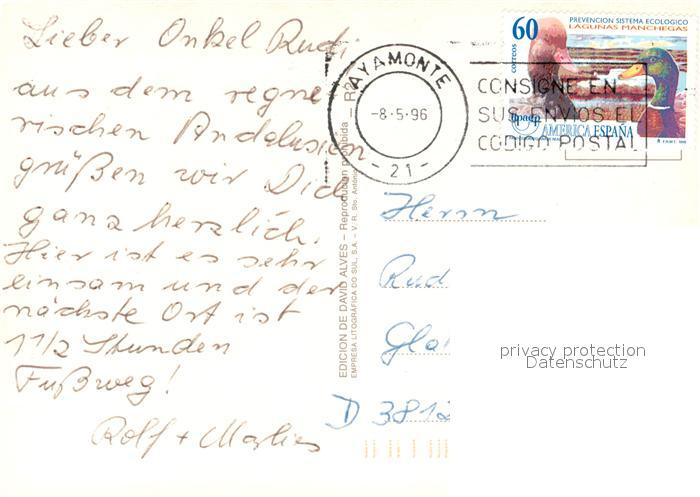 Lieber Onkel Rudi
aus dem regne
rischen Andalusien
grüßen wir Dich
ganz herzlich.
Hier ist es sehr
einsam und der
nächste Ort ist
1 1/2 Stunden
Fußweg!
Rolf + Marlies
EDICION DE DAVID ALVES – Reproducion prohibida
EMPRESA LITOGRÁFICA DO SUL, S.A. – V. R. Sto. António
AYAMONTE
-8-5-96
-21-
CONSIGNE EN
SUS ENVIOS EL
CODIGO POSTAL
60
CORREOS
PREVENCION SISTEMA ECOLOGICO
LAGUNAS MANCHEGAS
upaep
AMERICA ESPAÑA
Herrn
Rud
Gla
D 3812
privacy protection
Datenschutz